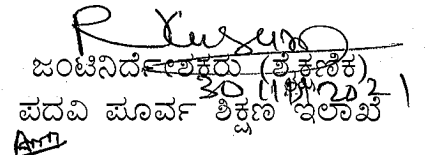 ಜಂಟಿನಿರ್ದೇಶಕರು (ಶೈಕ್ಷಣಿಕ)
30/11/2021
ಪದವಿ ಪೂರ್ವ ಶಿಕ್ಷಣ ಇಲಾಖೆ